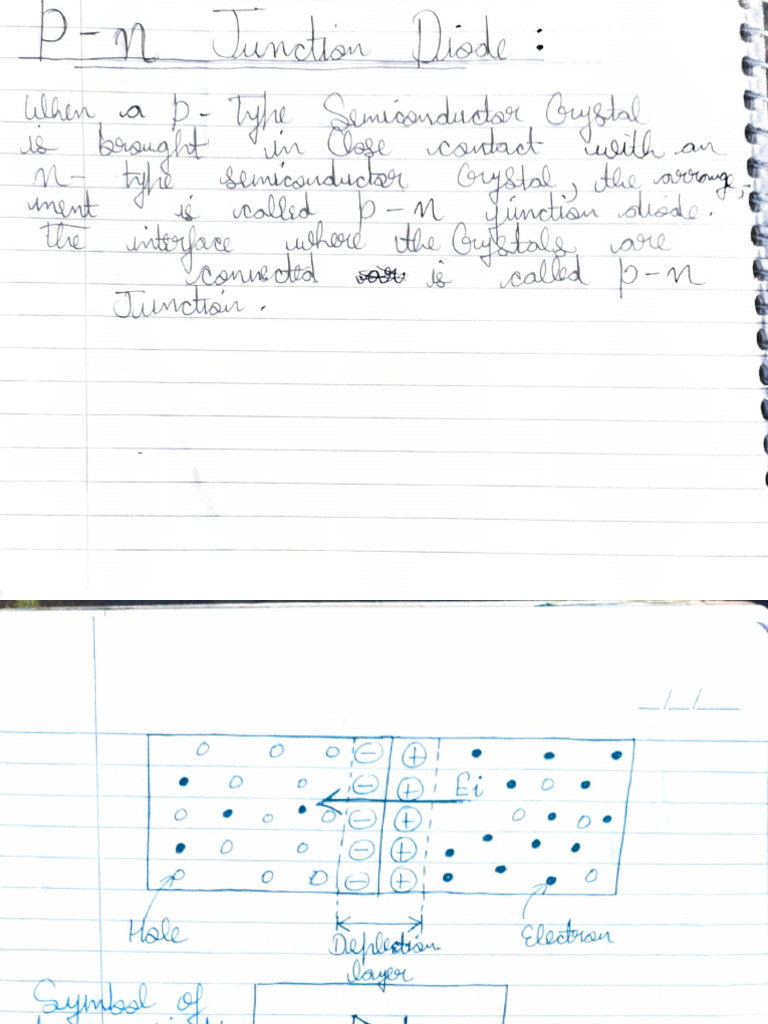 P-n Junction Diode :
When a p- type Semiconductor Crystal
is brought in Close contact with an
n- type semiconductor Crystal, the arrange,-
ment is called p-n junction diode.
The interface where the Crystals are
connected is called p-n
Junction.
_/_/_
- +
- + Ei
- +
- +
- +
Hole
Depletion
layer
Electron
Symbol of